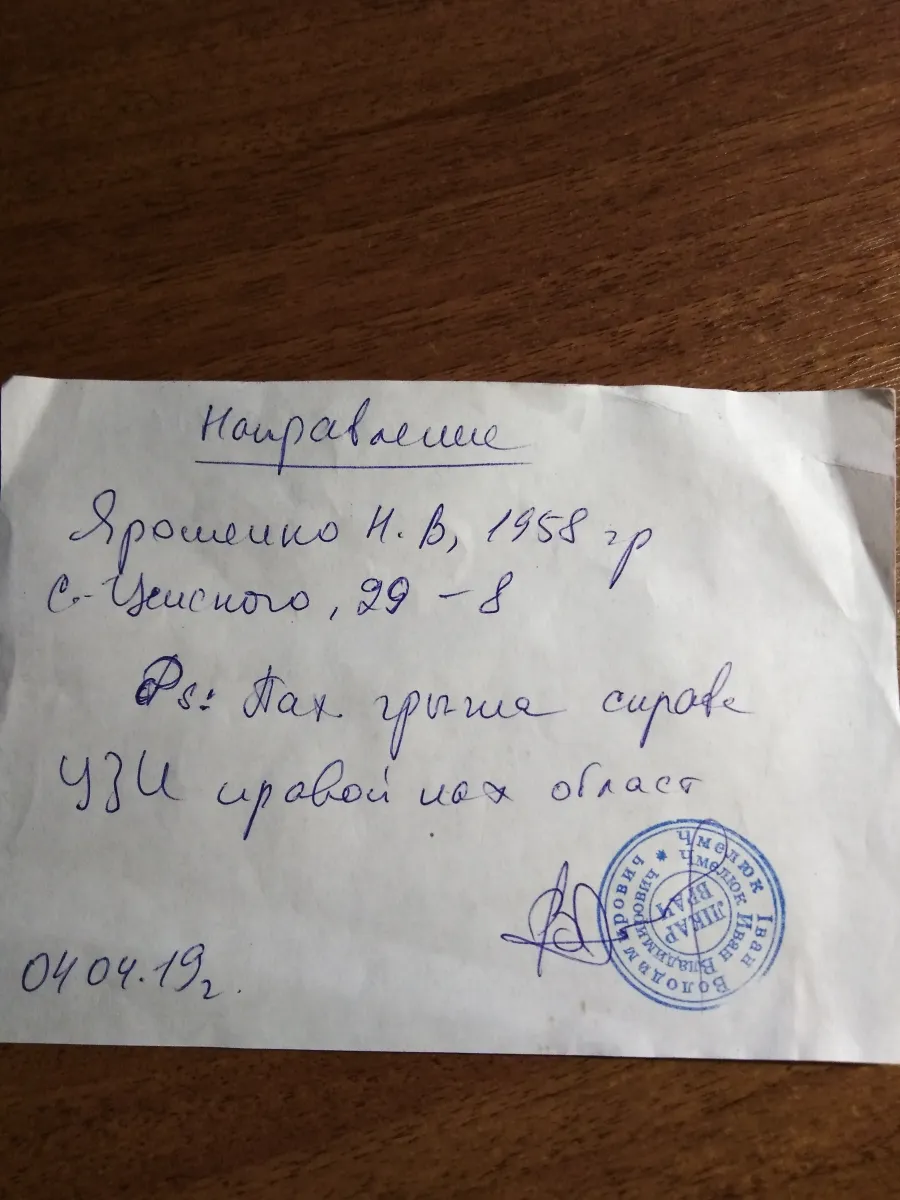 Направление
Ярошенко Н. В, 1958 гр
С.-Ценского, 29 - 8
Ds: Пах грыжа справа
УЗИ правой пах област
04 04. 19 г.
Чмелюк Іван Володимирович *
Чмелюк Иван Владимирович
ЛІКАР
ВРАЧ